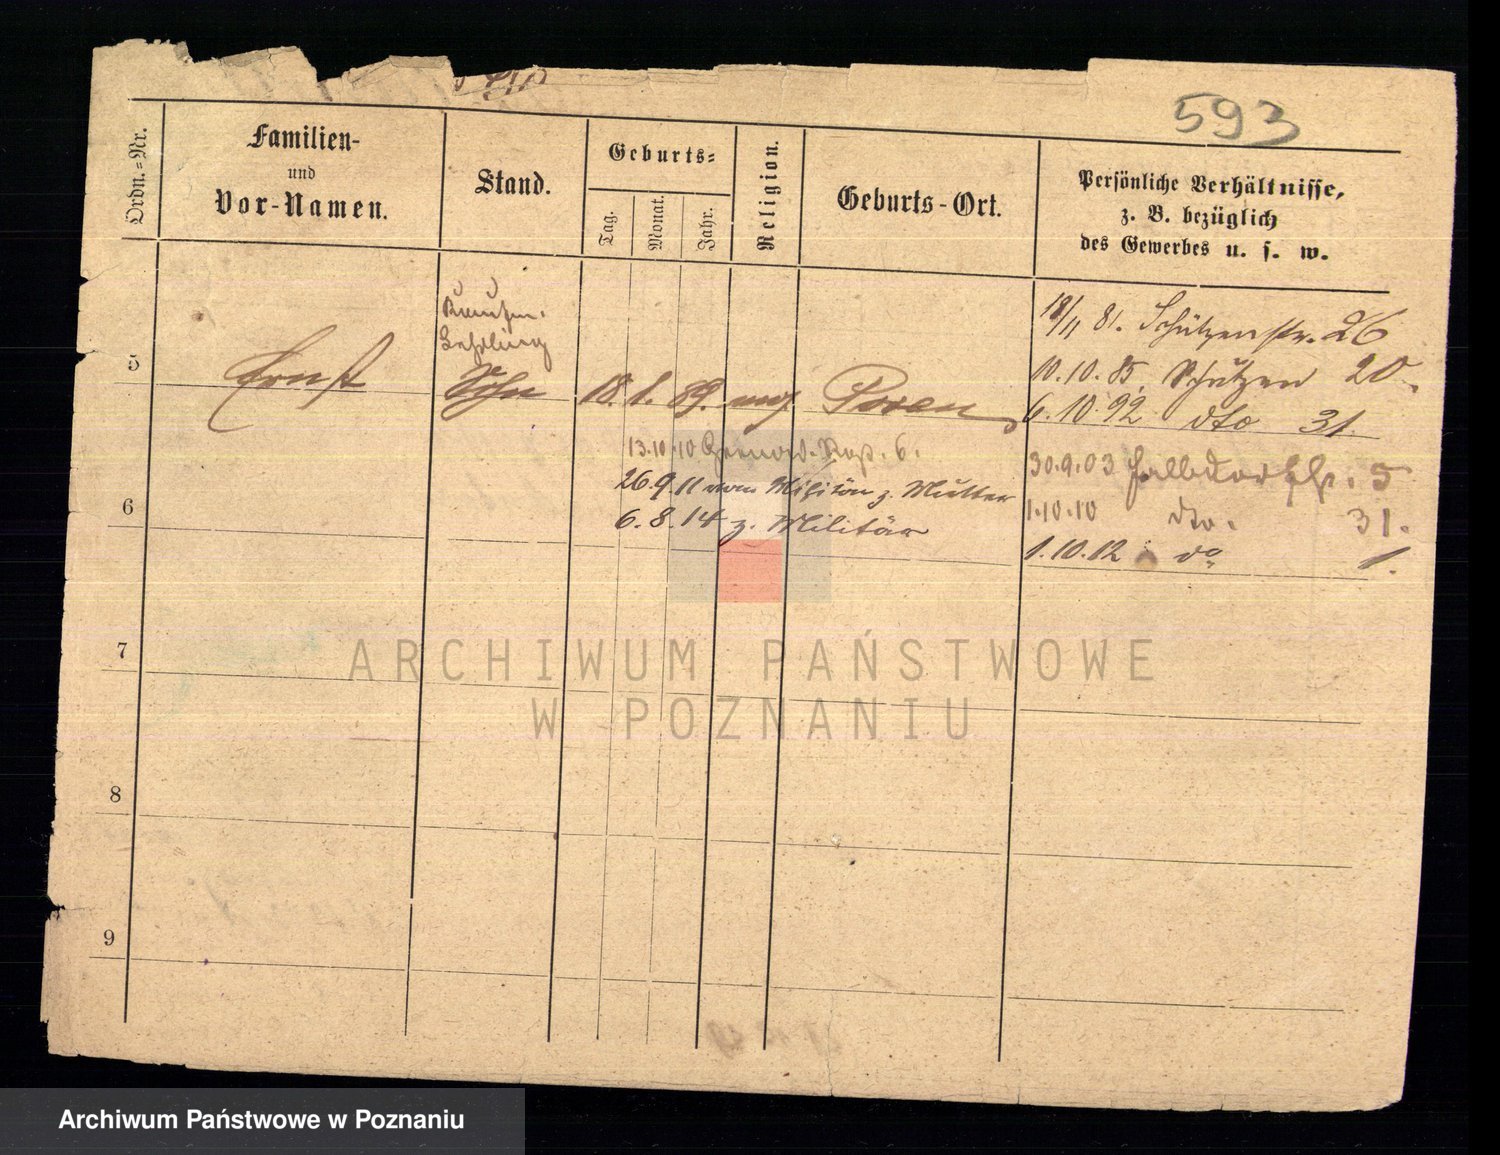 593
Ordn.-Nr.
Familien-
und
Vor-Namen.
Stand.
Geburts-
Tag.
Monat.
Jahr.
Religion.
Geburts-Ort.
Persönliche Verhältnisse,
z. B. bezüglich
des Gewerbes u. s. w.
18/11 81. Schützenstr. 26
Lehrling
5
Ernst Sohn 18. 1. 89. Posen
10.10.85. Schützen 20
6.10.92 dto 31.
13.10.10 6.
30.9.03 Halbdorfstr. 5
26.9.11 vom Militär z. Mutter
1.10.10 dto. 31.
6
6.8.14 z. Militär
1.10.12 do 1.
7
8
9
ARCHIWUM PAŃSTWOWE
W POZNANIU
Archiwum Państwowe w Poznaniu